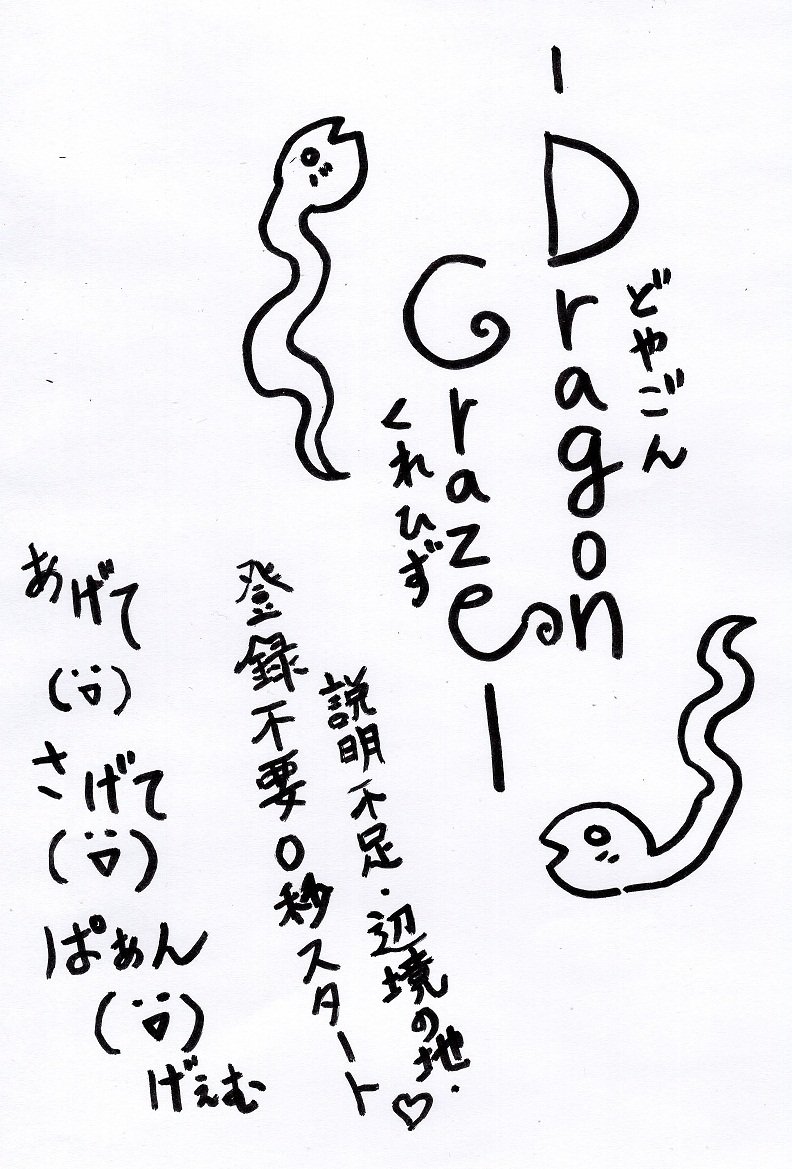 －Dragon
どやごん
Graze－
くれひず
説明不足・辺境の地・♡
登録不要0秒スタート
あげて
さげて
ぱぁん
げぇむ